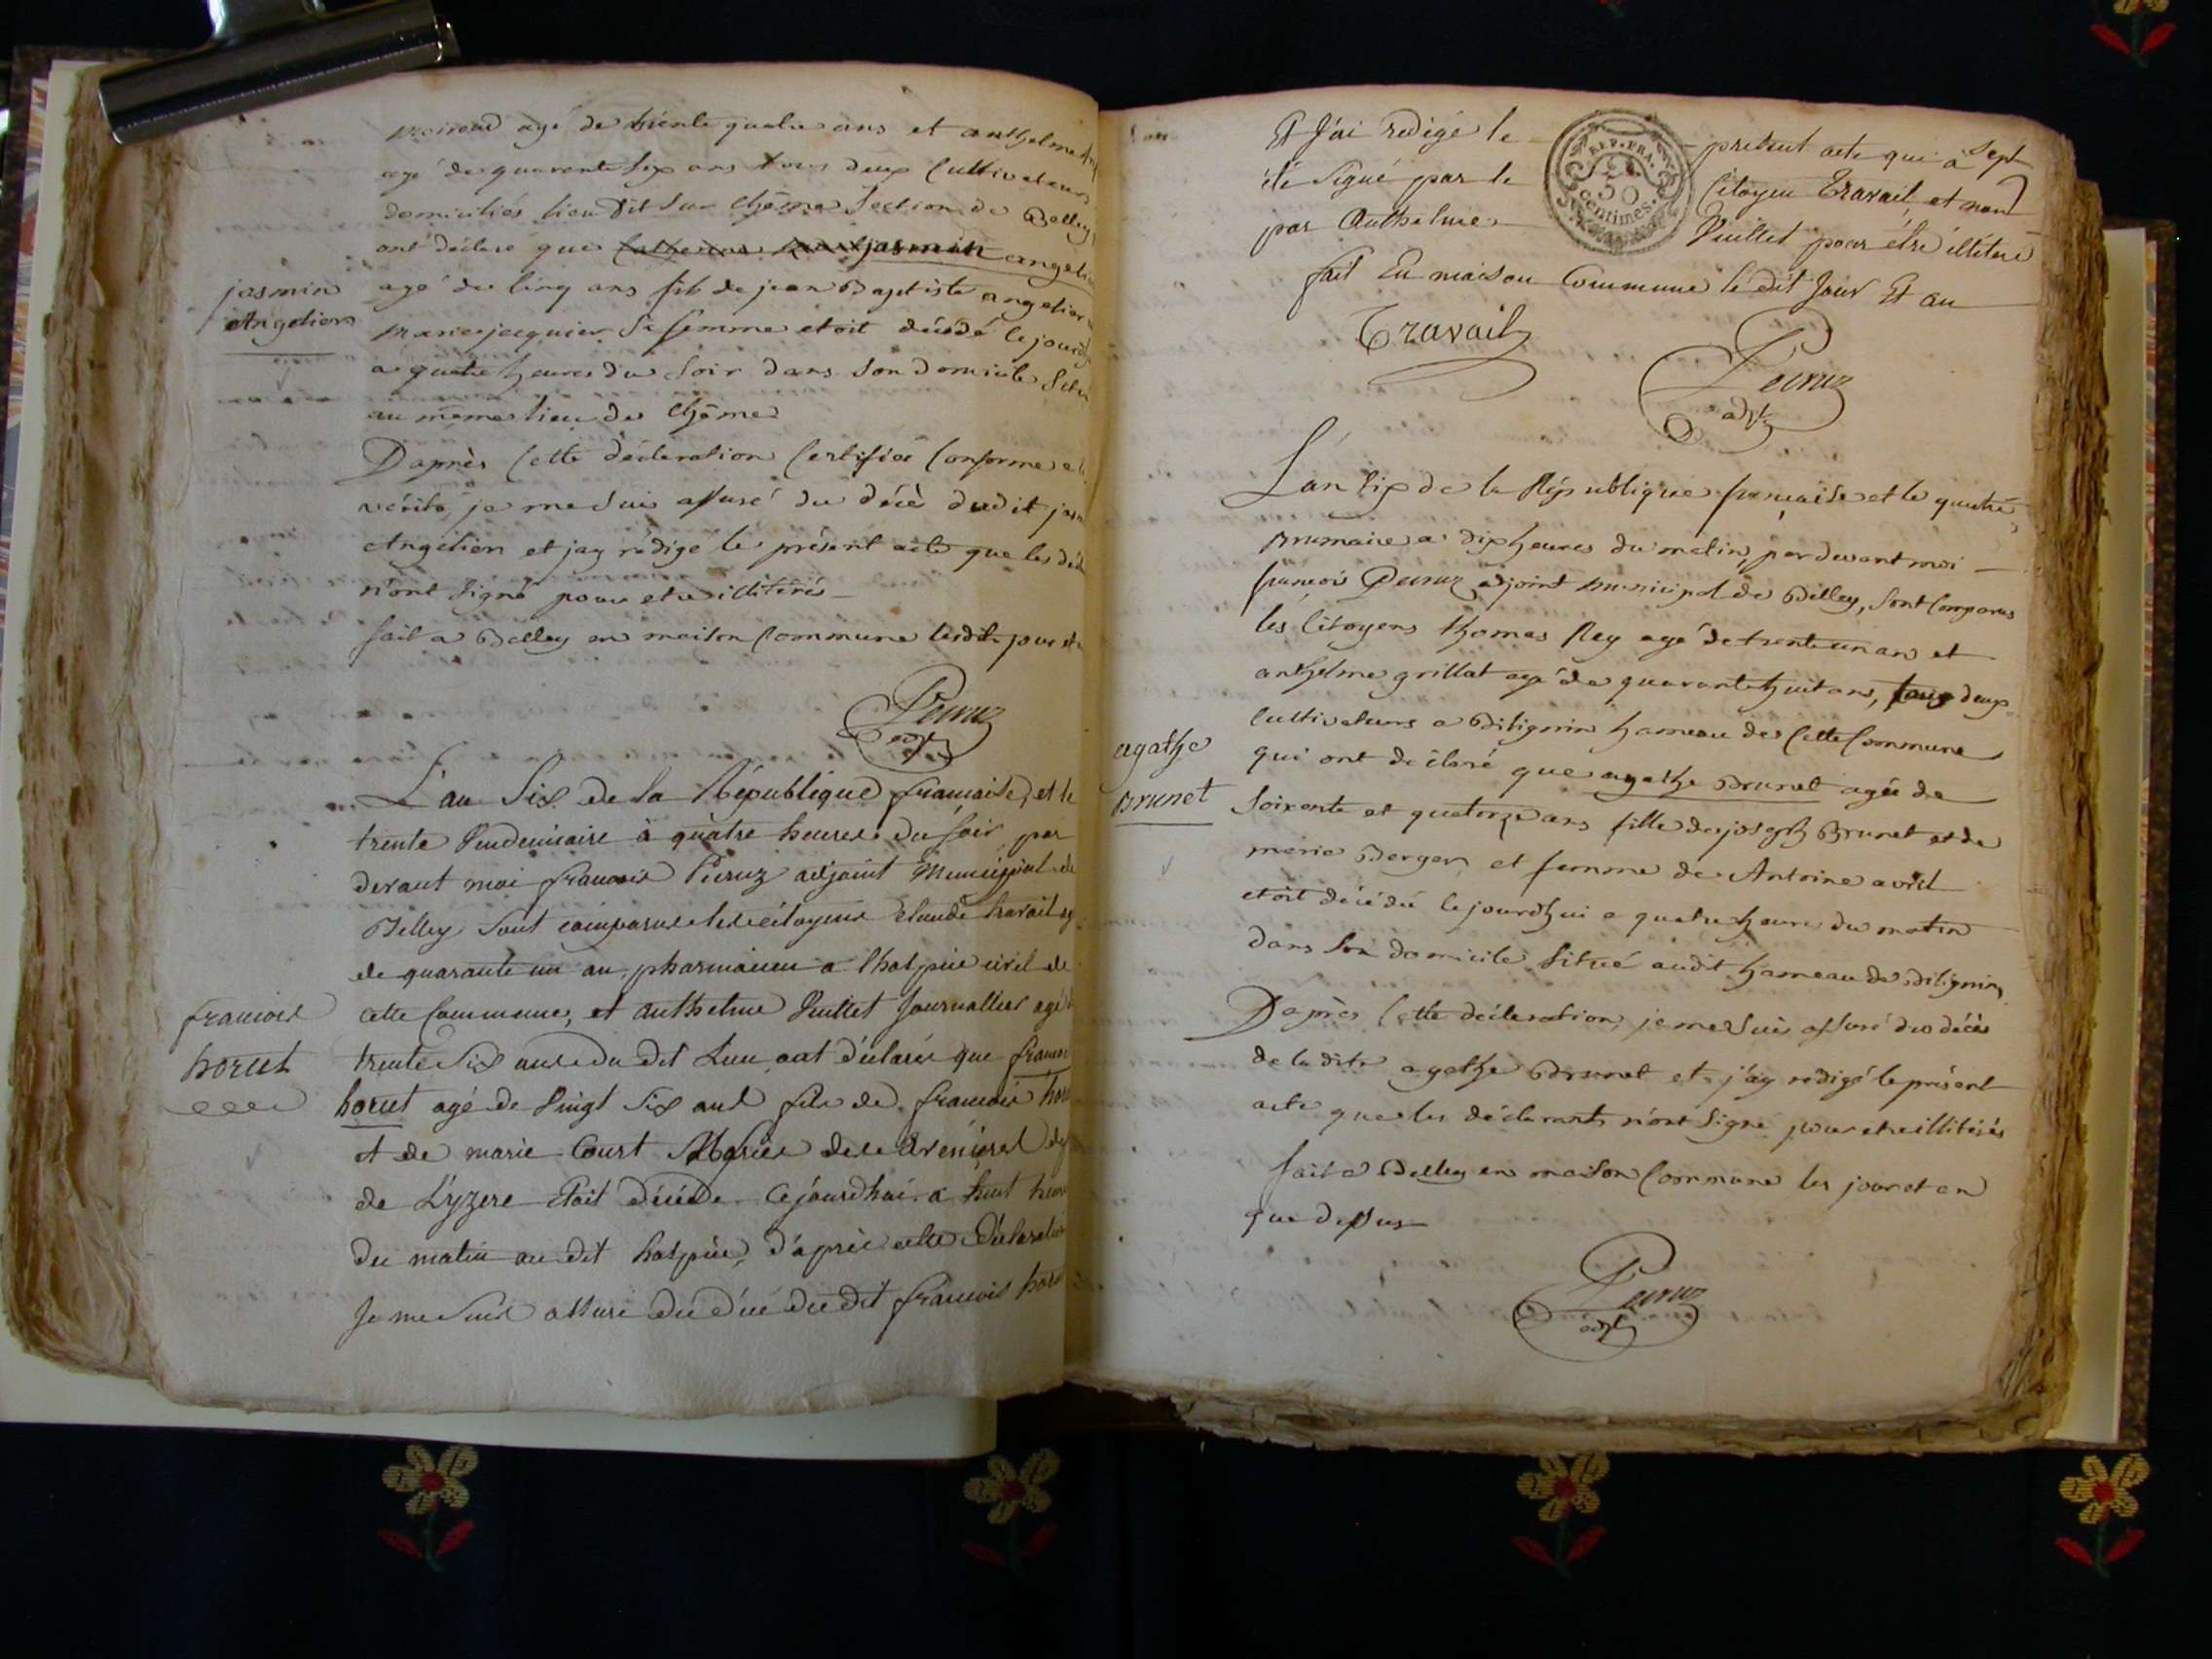 agé de trente quatre ans et anthelme
agé de quarante six ans tous deux Cultivateurs
domiciliés lieu dit Sur Chême Section de Belley
ont déclaré que jasmin angelier
jasmin
Angelier
agé de Cinq ans fils de jean Baptiste angelier
Marie jacquier Sa femme etoit décédé
a quatre heures du Soir dans Son Domicile
au même lieu de Chême
D'après Cette déclaration Certifiée Conforme
vérité, je me suis assuré du décè dudit
Angelier et jay rédigé le présent acte que les
n'ont Signé pour etre illitérés
fait a Belley en maison Commune
Peiruz
adjt
L'an Six de la République francaise, et le
trente Vendemiaire à quatre heures du soir, par
devant moi francois Peiruz adjoint Municipal de
Belley Sont comparus les citoyens Claude travail
de quarante un an, pharmacien a l'hospice civil de
francois
horset
cette Commune, et anthelme Vuillet Journallier agé
trente Six ans du dit Lieu ont déclarés que
agé de Vingt Six ans fils de francois
et de marie Court
de L'yzere etait décédé Cejourdhui a huit
du matin au dit hospice, d'après cette Déclaration
Je me Suis assuré du décé du dit francois
Et J'ai redigé le present acte qui a
REP. FRA.
50
centimes.
été Signé par le Citoyen Travail, et non
par Anthelme Vuillet pour être illétéré
fait En maison Commune le dit Jour Et an
Travail
Peiruz
adjt
L'an Six de la République française et le quatre
Brumaire a dix heures du matin, par devant moi
françois Peiruz adjoint municipal de Belley, Sont Comparus
les Citoyens thomas Rey agé de trente un ans et
anthelme grillat agé de quarante huit ans, tous deux
Cultivateurs a Bilignin hameau de Cette Commune
agathe
Brunet
qui ont déclaré que agathe Brunet agée de
Soixente et quatorze ans fille de joseph Brunet et de
marie Berger et femme de Antoine avril
etoit décédée lejourdhui a quatre heures du matin
dans Son domicile Situé audit hameau de Bilignin,
D'après Cette déclaration, je me Suis assuré du décès
de la dite agathe Brunet et j'ay rédigé le présent
acte que les déclarants n'ont Signé pour etre illitérés
fait a Belley en maison Commune les jour et an
que dessus
Peiruz
adjt